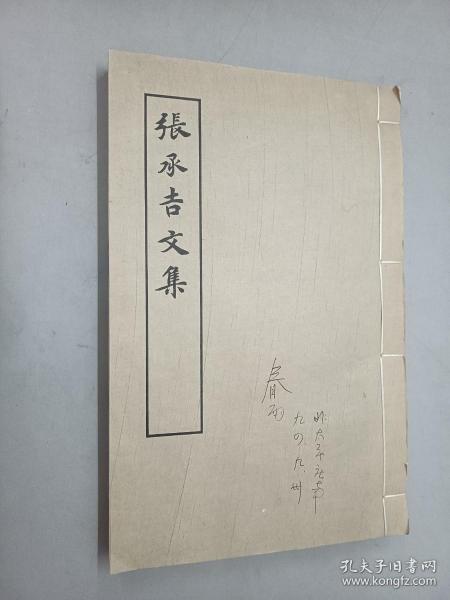 張承吉文集
九四.九.卅
孔夫子旧书网
www.kongfz.com